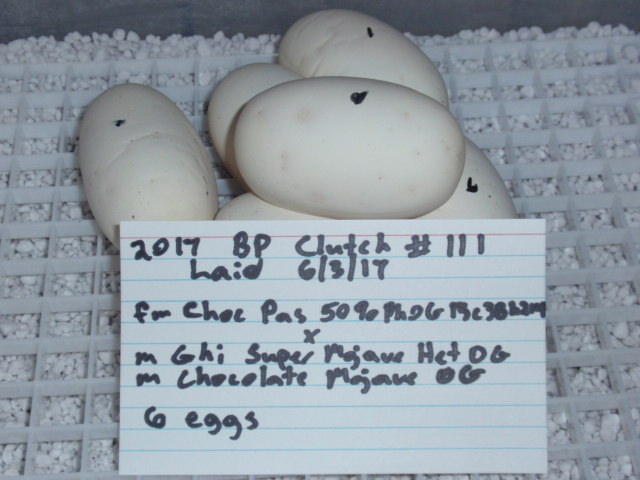 2017 BP Clutch # 111
Laid 6/3/17
fm Choc Pas 50% Ph DG
x
m Ghi Super Mojave Het DG
m Chocolate Mojave DG
6 eggs